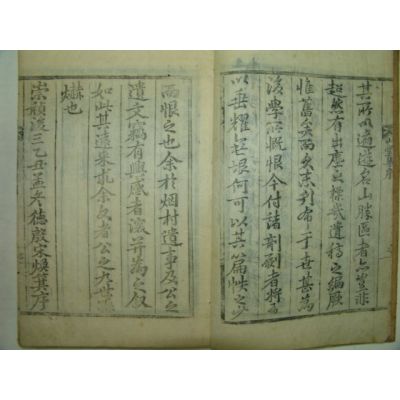 其所以適遊名山勝區者亦豈非
超然有出塵之標哉遺稿之編厥
惟舊矣而久未刊布于世甚爲
後學所慨恨今付諸剞劂者將
以垂耀無垠何可以其篇帙之少
而恨之也余於烟村遺事及公之
遺文竊有興感者遂并爲之叙
如此其遠來求余文者公之九世
爀也
崇禎後三乙丑孟冬德殷宋煥箕序